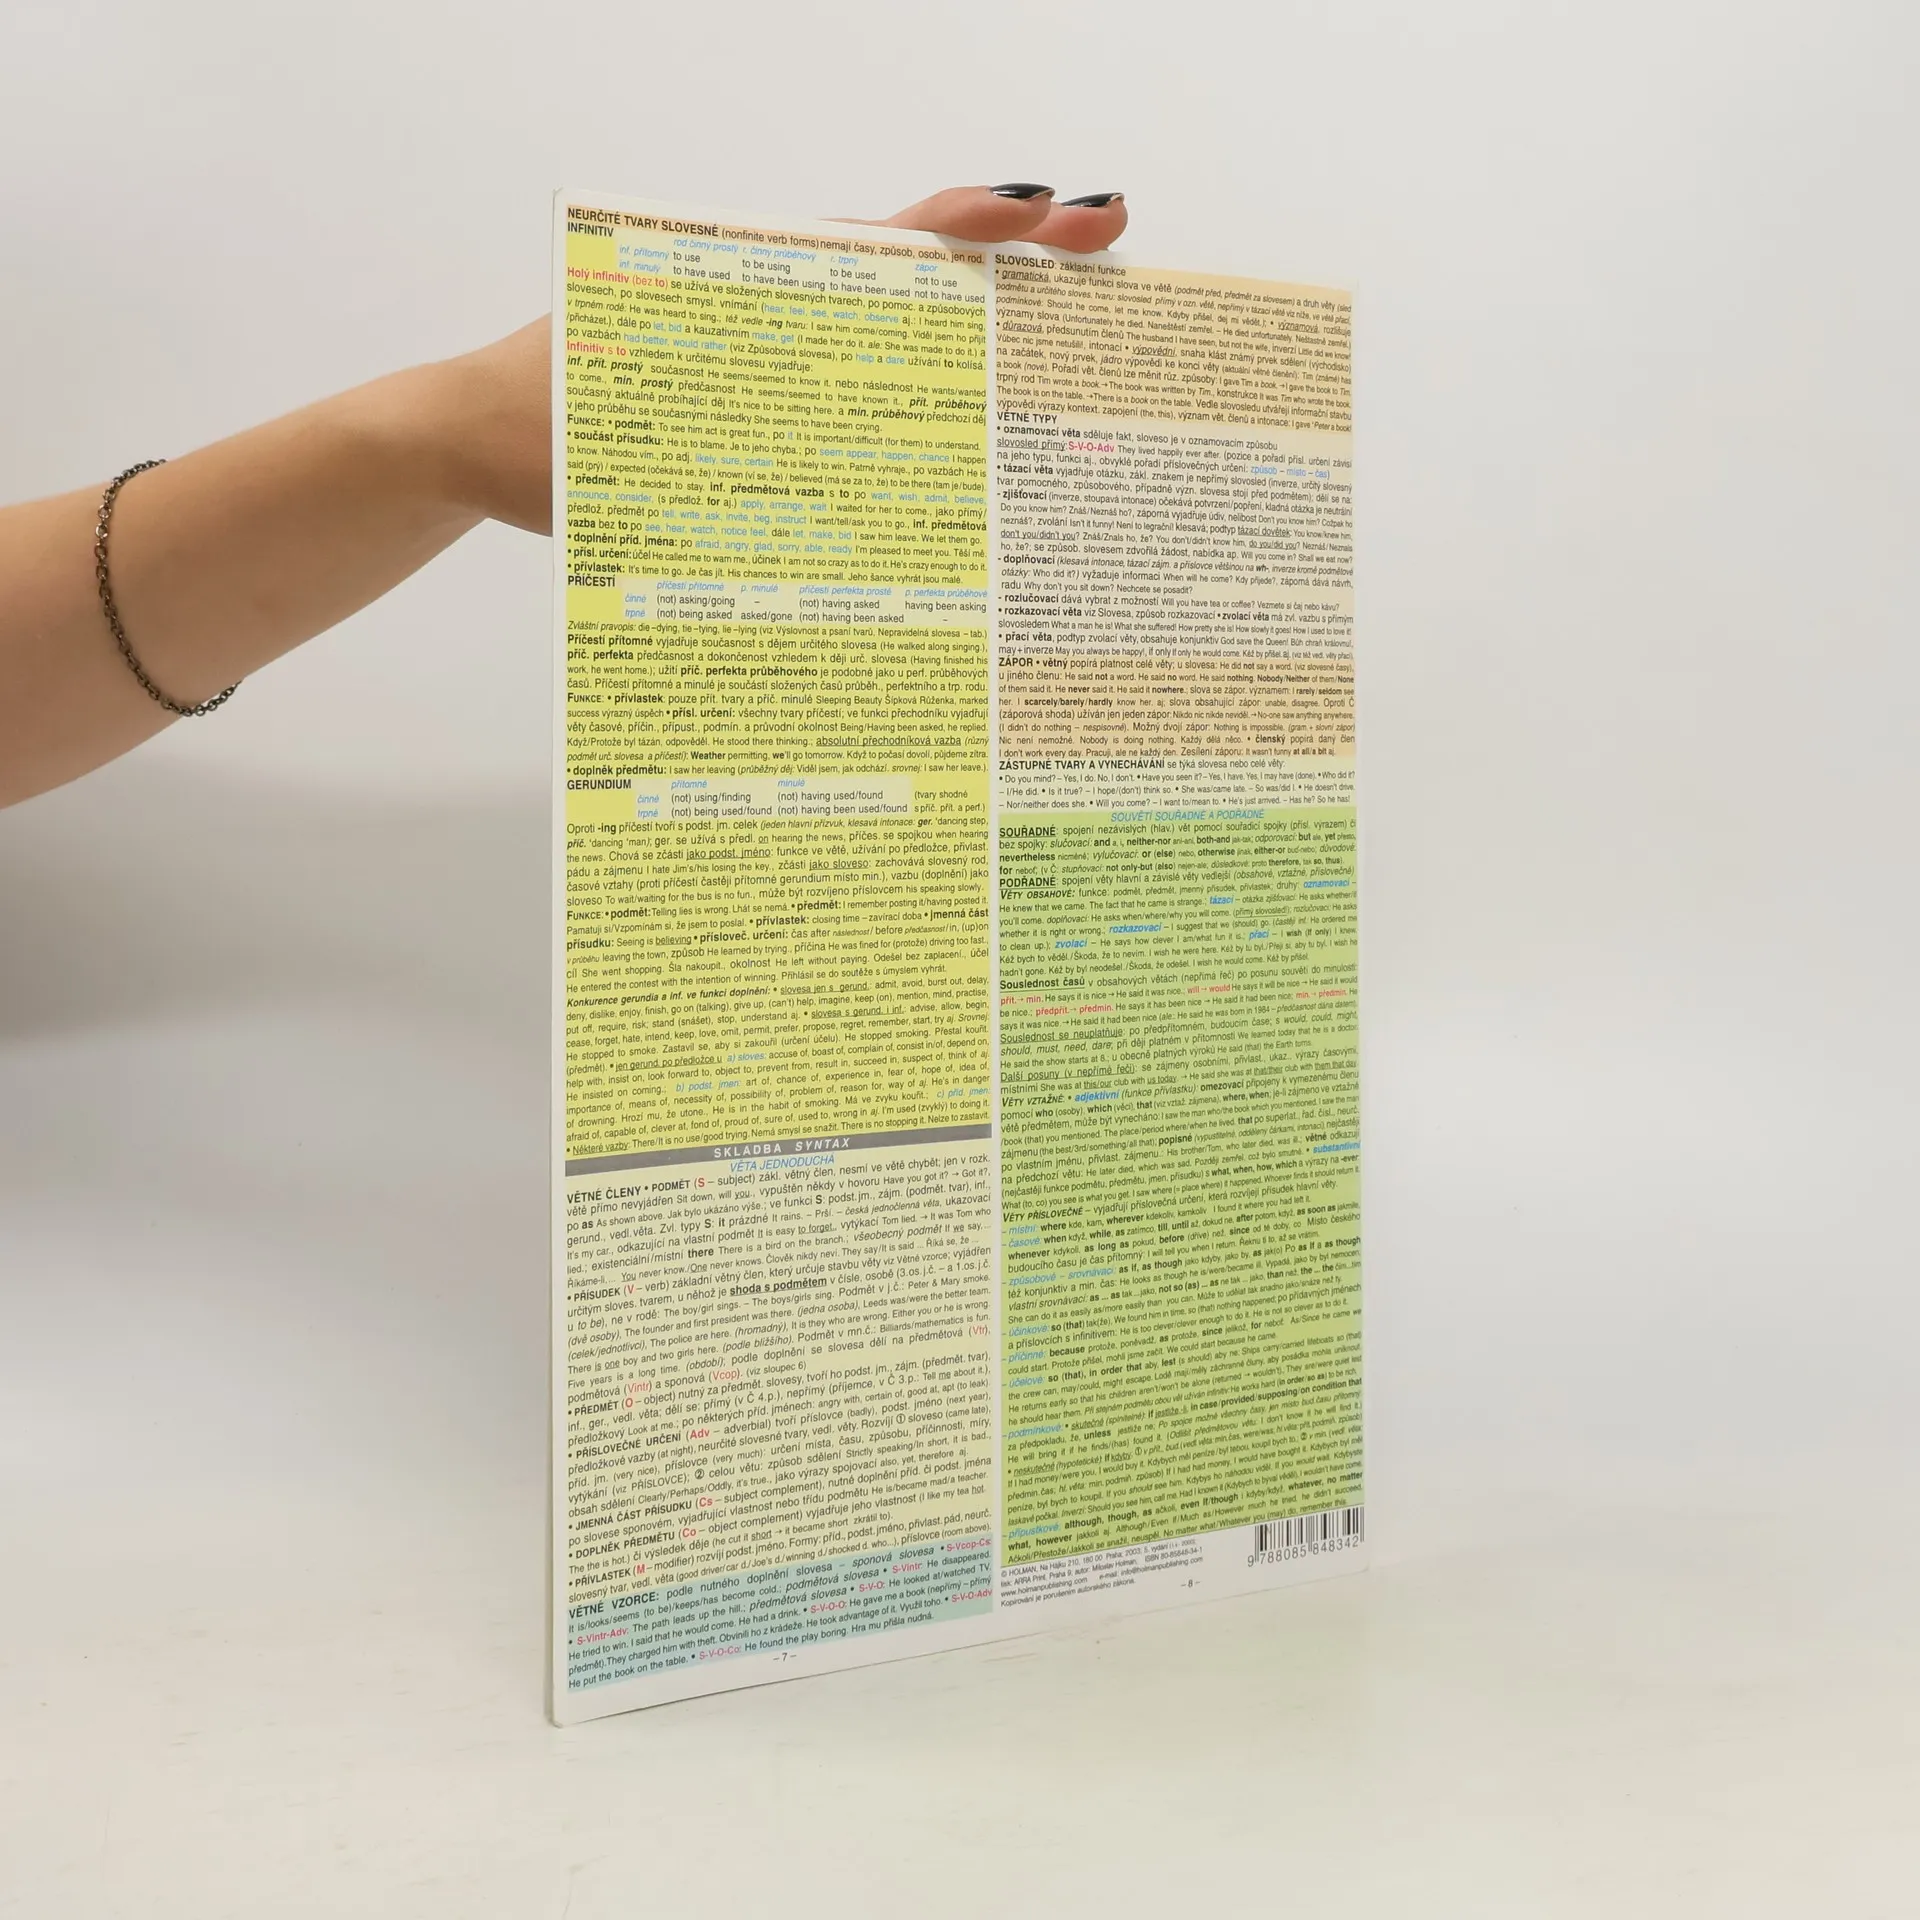 NEURČITÉ TVARY SLOVESNÉ (nonfinite verb forms) nemají časy, způsob, osobu, jen rod.
INFINITIV
rod činný prostý r. činný průběhový r. trpný zápor
inf. přítomný to use to be using to be used not to use
inf. minulý to have used to have been using to have been used not to have used
Holý infinitiv (bez to) se užívá ve složených slovesných tvarech, po pomoc. a způsobových
slovesech, po slovesech smysl. vnímání (hear, feel, see, watch, observe aj.: I heard him sing,
v trpném rodě: He was heard to sing.; též vedle -ing tvaru: I saw him come/coming. Viděl jsem ho přijít
/přicházet.), dále po let, bid a kauzativním make, get (I made her do it. ale: She was made to do it.) a
po vazbách had better, would rather (viz Způsobová slovesa), po help a dare užívání to kolísá.
Infinitiv s to vzhledem k určitému slovesu vyjadřuje:
inf. přít. prostý současnost He seems/seemed to know it. nebo následnost He wants/wanted
to come., min. prostý předčasnost He seems/seemed to have known it., přít. průběhový
současný aktuálně probíhající děj It's nice to be sitting here. a min. průběhový předchozí děj
v jeho průběhu se současnými následky She seems to have been crying.
FUNKCE: • podmět: To see him act is great fun., po it It is important/difficult (for them) to understand.
• součást přísudku: He is to blame. Je to jeho chyba.; po seem appear, happen, chance I happen
to know. Náhodou vím., po adj. likely, sure, certain He is likely to win. Patrně vyhraje., po vazbách He is
said (prý) / expected (očekává se, že) / known (ví se, že) / believed (má se za to, že) to be there (tam je/bude).
• předmět: He decided to stay. inf. předmětová vazba s to po want, wish, admit, believe,
announce, consider, (s předlož. for aj.) apply, arrange, wait I waited for her to come., jako přímý/
předlož. předmět po tell, write, ask, invite, beg, instruct I want/tell/ask you to go., inf. předmětová
vazba bez to po see, hear, watch, notice feel, dále let, make, bid I saw him leave. We let them go.
• doplnění příd. jména: po afraid, angry, glad, sorry, able, ready I'm pleased to meet you. Těší mě.
• přísl. určení: účel He called me to warn me., účinek I am not so crazy as to do it. He's crazy enough to do it.
• přívlastek: It's time to go. Je čas jít. His chances to win are small. Jeho šance vyhrát jsou malé.
PŘÍČESTÍ
příčestí přítomné p. minulé příčestí perfekta prosté p. perfekta průběhové
činné (not) asking/going – (not) having asked having been asking
trpné (not) being asked asked/gone (not) having been asked –
Zvláštní pravopis: die –dying, tie –tying, lie –lying (viz Výslovnost a psaní tvarů, Nepravidelná slovesa – tab.)
Příčestí přítomné vyjadřuje současnost s dějem určitého slovesa (He walked along singing.),
příč. perfekta předčasnost a dokončenost vzhledem k ději urč. slovesa (Having finished his
work, he went home.); užití příč. perfekta průběhového je podobné jako u perf. průběhových
časů. Příčestí přítomné a minulé je součástí složených časů průběh., perfektního a trp. rodu.
FUNKCE: • přívlastek: pouze přít. tvary a příč. minulé Sleeping Beauty Šípková Růženka, marked
success výrazný úspěch • přísl. určení: všechny tvary příčestí; ve funkci přechodníku vyjadřují
věty časové, příčin., přípust., podmín. a průvodní okolnost Being/Having been asked, he replied.
Když/Protože byl tázán, odpověděl. He stood there thinking.; absolutní přechodníková vazba (různý
podmět urč. slovesa a příčestí): Weather permitting, we'll go tomorrow. Když to počasí dovolí, půjdeme zítra.
• doplněk předmětu: I saw her leaving (průběžný děj: Viděl jsem, jak odchází. srovnej: I saw her leave.).
GERUNDIUM
přítomné minulé
činné (not) using/finding (not) having used/found (tvary shodné
trpné (not) being used/found (not) having been used/found s příč. přít. a perf.)
Oproti -ing příčestí tvoří s podst. jm. celek (jeden hlavní přízvuk, klesavá intonace: ger. 'dancing step,
příč. 'dancing 'man); ger. se užívá s předl. on hearing the news, příčes. se spojkou when hearing
the news. Chová se zčásti jako podst. jméno: funkce ve větě, užívání po předložce, přívlast.
pádu a zájmenu I hate Jim's/his losing the key., zčásti jako sloveso: zachovává slovesný rod,
časové vztahy (proti příčestí častěji přítomné gerundium místo min.), vazbu (doplnění) jako
sloveso To wait/waiting for the bus is no fun., může být rozvíjeno příslovcem his speaking slowly.
FUNKCE: • podmět: Telling lies is wrong. Lhát se nemá. • předmět: I remember posting it/having posted it.
Pamatuji si/Vzpomínám si, že jsem to poslal. • přívlastek: closing time – zavírací doba • jmenná část
přísudku: Seeing is believing • přísloveč. určení: čas after následnost/ before předčasnost/ in, (up)on
v průběhu leaving the town, způsob He learned by trying., příčina He was fined for (protože) driving too fast.,
cíl She went shopping. Šla nakoupit., okolnost He left without paying. Odešel bez zaplacení., účel
He entered the contest with the intention of winning. Přihlásil se do soutěže s úmyslem vyhrát.
Konkurence gerundia a inf. ve funkci doplnění: • slovesa jen s gerund.: admit, avoid, burst out, delay,
deny, dislike, enjoy, finish, go on (talking), give up, (can't) help, imagine, keep (on), mention, mind, practise,
put off, require, risk, stand (snášet), stop, understand aj. • slovesa s gerund. i inf.: advise, allow, begin,
cease, forget, hate, intend, keep, love, omit, permit, prefer, propose, regret, remember, start, try aj. Srovnej:
He stopped to smoke. Zastavil se, aby si zakouřil (určení účelu). He stopped smoking. Přestal kouřit.
(předmět). • jen gerund. po předložce u a) sloves: accuse of, boast of, complain of, consist in/of, depend on,
help with, insist on, look forward to, object to, prevent from, result in, succeed in, suspect of, think of aj.
He insisted on coming.; b) podst. jmen: art of, chance of, experience in, fear of, hope of, idea of,
importance of, means of, necessity of, possibility of, problem of, reason for, way of aj. He's in danger
of drowning. Hrozí mu, že utone., He is in the habit of smoking. Má ve zvyku kouřit.; c) příd. jmen:
afraid of, capable of, clever at, fond of, proud of, sure of, used to, wrong in aj. I'm used (zvyklý) to doing it.
• Některé vazby: There/It is no use/good trying. Nemá smysl se snažit. There is no stopping it. Nelze to zastavit.
SKLADBA SYNTAX
VĚTA JEDNODUCHÁ
VĚTNÉ ČLENY • PODMĚT (S – subject) zákl. větný člen, nesmí ve větě chybět; jen v rozk.
větě přímo nevyjádřen Sit down, will you., vypuštěn někdy v hovoru Have you got it? → Got it?,
po as As shown above. Jak bylo ukázáno výše.; ve funkci S: podst. jm., zájm. (podmět. tvar), inf.,
gerund., vedl. věta. Zvl. typy S: it prázdné It rains. – Prší. – česká jednočlenná věta, ukazovací
It's my car., odkazující na vlastní podmět It is easy to forget., vytýkací Tom lied. → It was Tom who
lied.; existenciální/místní there There is a bird on the branch.; všeobecný podmět If we say....
Říkáme-li.... You never know./One never knows. Člověk nikdy neví. They say/It is said ... Říká se, že ...
• PŘÍSUDEK (V – verb) základní větný člen, který určuje stavbu věty viz Větné vzorce; vyjádřen
určitým sloves. tvarem, u něhož je shoda s podmětem v čísle, osobě (3.os.j.č. – a 1.os.j.č.
u to be), ne v rodě: The boy/girl sings. – The boys/girls sing. Podmět v j.č.: Peter & Mary smoke.
(dvě osoby), The founder and first president was there. (jedna osoba), Leeds was/were the better team.
(celek/jednotlivci), The police are here. (hromadný), It is they who are wrong. Either you or he is wrong.
There is one boy and two girls here. (podle bližšího). Podmět v mn.č.: Billiards/mathematics is fun.
Five years is a long time. (období); podle doplnění se slovesa dělí na předmětová (Vtr),
podmětová (Vintr) a sponová (Vcop). (viz sloupec 6)
• PŘEDMĚT (O – object) nutný za předmět. slovesy, tvoří ho podst. jm., zájm. (předmět. tvar),
inf., ger., vedl. věta; dělí se: přímý (v Č 4.p.), nepřímý (příjemce, v Č 3.p.: Tell me about it.),
předložkový Look at me.; po některých příd. jménech: angry with, certain of, good at, apt (to leak).
• PŘÍSLOVEČNÉ URČENÍ (Adv – adverbial) tvoří příslovce (badly), podst. jméno (next year),
předložkové vazby (at night), neurčité slovesné tvary, vedl. věty. Rozvíjí ① sloveso (came late),
příd. jm. (very nice), příslovce (very much): určení místa, času, způsobu, příčinnosti, míry,
vytýkání (viz PŘÍSLOVCE); ② celou větu: způsob sdělení Strictly speaking/In short, it is bad.,
obsah sdělení Clearly/Perhaps/Oddly, it's true., jako výrazy spojovací also, yet, therefore aj.
• JMENNÁ ČÁST PŘÍSUDKU (Cs – subject complement), nutné doplnění příd. či podst. jména
po slovese sponovém, vyjadřující vlastnost nebo třídu podmětu He is/became mad/a teacher.
• DOPLNĚK PŘEDMĚTU (Co – object complement) vyjadřuje jeho vlastnost (I like my tea hot.
The the is hot.) či výsledek děje (he cut it short → it became short zkrátil to).
• PŘÍVLASTEK (M – modifier) rozvíjí podst. jméno. Formy: příd., podst. jméno, přivlast. pád, neurč.
slovesný tvar, vedl. věta (good driver/car d./Joe's d./winning d./shocked d. who...), příslovce (room above).
VĚTNÉ VZORCE: podle nutného doplnění slovesa – sponová slovesa • S-Vcop-Cs:
It is/looks/seems (to be)/keeps/has become cold.; podmětová slovesa • S-Vintr: He disappeared.
• S-Vintr-Adv: The path leads up the hill.; předmětová slovesa • S-V-O: He looked at/watched TV.
He tried to win. I said that he would come. He had a drink. • S-V-O-O: He gave me a book (nepřímý – přímý
předmět). They charged him with theft. Obvinili ho z krádeže. He took advantage of it. Využil toho. • S-V-O-Adv
He put the book on the table. • S-V-O-Co: He found the play boring. Hra mu přišla nudná.
– 7 –
SLOVOSLED: základní funkce
• gramatická, ukazuje funkci slova ve větě (podmět před, předmět za slovesem) a druh věty (sled
podmětu a určitého sloves. tvaru: slovosled přímý v ozn. větě, nepřímý v tázací větě viz níže, ve větě přací,
podmínkové: Should he come, let me know. Kdyby přišel, dej mi vědět.); • významová, rozlišuje
významy slova (Unfortunately he died. Naneštěstí zemřel. – He died unfortunately. Nešťastně zemřel.)
• důrazová, předsunutím členů The husband I have seen, but not the wife, inverzí Little did we know!
Vůbec nic jsme netušili!, intonací • výpovědní, snaha klást známý prvek sdělení (východisko)
na začátek, nový prvek, jádro výpovědi ke konci věty (aktuální větné členění): Tim (známé) has
a book (nové). Pořadí vět. členů lze měnit růz. způsoby: I gave Tim a book. → I gave the book to Tim.
trpný rod Tim wrote a book. → The book was written by Tim., konstrukce It was Tim who wrote the book.
The book is on the table. → There is a book on the table. Vedle slovosledu utvářejí informační stavbu
výpovědi výrazy kontext. zapojení (the, this), význam vět. členů a intonace: I gave 'Peter a book!
VĚTNÉ TYPY
• oznamovací věta sděluje fakt, sloveso je v oznamovacím způsobu
slovosled přímý: S-V-O-Adv They lived happily ever after. (pozice a pořadí přísl. určení závisí
na jeho typu, funkci aj., obvyklé pořadí příslovečných určení: způsob – místo – čas)
• tázací věta vyjadřuje otázku, zákl. znakem je nepřímý slovosled (inverze, určitý slovesný
tvar pomocného, způsobového, případně význ. slovesa stojí před podmětem); dělí se na:
- zjišťovací (inverze, stoupavá intonace) očekává potvrzení/popření, kladná otázka je neutrální
Do you know him? Znáš/Neznáš ho?, záporná vyjadřuje údiv, nelibost Don't you know him? Cožpak ho
neznáš?, zvolání Isn't it funny! Není to legrační! klesavá; podtyp tázací dovětek: You know/knew him,
don't you/didn't you? Znáš/Znals ho, že? You don't/didn't know him, do you/did you? Neznáš/Neznals
ho, že?; se způsob. slovesem zdvořilá žádost, nabídka ap. Will you come in? Shall we eat now?
- doplňovací (klesavá intonace, tázací zájm. a příslovce většinou na wh-, inverze kromě podmětové
otázky: Who did it?) vyžaduje informaci When will he come? Kdy přijede?, záporná dává návrh,
radu Why don't you sit down? Nechcete se posadit?
- rozlučovací dává vybrat z možností Will you have tea or coffee? Vezmete si čaj nebo kávu?
• rozkazovací věta viz Slovesa, způsob rozkazovací • zvolací věta má zvl. vazbu s přímým
slovosledem What a man he is! What she suffered! How pretty she is! How slowly it goes! How I used to love it!
• přací věta, podtyp zvolací věty, obsahuje konjunktiv God save the Queen! Bůh chraň královnu!,
may + inverze May you always be happy!, if only If only he would come. Kéž by přišel. aj. (viz též vedl. věty přací).
ZÁPOR • větný popírá platnost celé věty; u slovesa: He did not say a word. (viz slovesné časy),
u jiného členu: He said not a word. He said no word. He said nothing. Nobody/Neither of them/None
of them said it. He never said it. He said it nowhere.; slova se zápor. významem: I rarely/seldom see
her. I scarcely/barely/hardly know her. aj; slova obsahující zápor: unable, disagree. Oproti Č
(záporová shoda) užíván jen jeden zápor: Nikdo nic nikde neviděl. → No-one saw anything anywhere.
(I didn't do nothing – nespisovné). Možný dvojí zápor: Nothing is impossible. (gram + slovní zápor)
Nic není nemožné. Nobody is doing nothing. Každý dělá něco. • členský popírá daný člen
I don't work every day. Pracuji, ale ne každý den. Zesílení záporu: It wasn't funny at all/a bit aj.
ZÁSTUPNÉ TVARY A VYNECHÁVÁNÍ se týká slovesa nebo celé věty:
• Do you mind? – Yes, I do. No, I don't. • Have you seen it? – Yes, I have. Yes, I may have (done). • Who did it?
– I/He did. • Is it true? – I hope/(don't) think so. • She was/came late. – So was/did I. • He doesn't drive.
– Nor/neither does she. • Will you come? – I want to/mean to. • He's just arrived. – Has he? So he has!
SOUVĚTÍ SOUŘADNÉ A PODŘADNÉ
SOUŘADNÉ: spojení nezávislých (hlav.) vět pomocí souřadicí spojky (přísl. výrazem) či
bez spojky: slučovací: and a, i, neither-nor ani-ani, both-and jak-tak; odporovací: but ale, yet přesto,
nevertheless nicméně; vylučovací: or (else) nebo, otherwise jinak, either-or buď-nebo; důvodové:
for neboť; (v Č: stupňovací: not only-but (also) nejen-ale; důsledkové: proto therefore, tak so, thus).
PODŘADNÉ: spojení věty hlavní a závislé věty vedlejší (obsahové, vztažné, příslovečné)
VĚTY OBSAHOVÉ: funkce: podmět, předmět, jmenný přísudek, přívlastek; druhy: oznamovací –
He knew that we came. The fact that he came is strange.; tázací – otázka zjišťovací: He asks whether/if
you'll come. doplňovací: He asks when/where/why you will come. (přímý slovosled); rozlučovací: He asks
whether it is right or wrong.; rozkazovací – I suggest that we (should) go. (častěji inf. He ordered me
to clean up.); zvolací – He says how clever I am/what fun it is.; přací – I wish (If only) I knew.
Kéž bych to věděl./Škoda, že to nevím. I wish he were here. Kéž by tu byl./Přeji si, aby tu byl. I wish he
hadn't gone. Kéž by byl neodešel./Škoda, že odešel. I wish he would come. Kéž by přišel.
Souslednost časů v obsahových větách (nepřímá řeč) po posunu souvětí do minulosti:
přít. → min. He says it is nice → He said it was nice., will → would He says it will be nice → He said it would
be nice.; předpřít. → předmin. He says it has been nice → He said it had been nice; min. → předmin. He
says it was nice → He said it had been nice (ale: He said he was born in 1984 – předčasnost dána datem).
Souslednost se neuplatňuje: po předpřítomném, budoucím čase; s would, could, might,
should, must, need, dare; při ději platném v přítomnosti We learned today that he is a doctor.
He said the show starts at 8.; u obecně platných výroků He said (that) the Earth turns.
Další posuny (v nepřímé řeči): se zájmeny osobními, přivlast., ukaz., výrazy časovými,
místními She was at this/our club with us today. → He said she was at that/their club with them that day.
VĚTY VZTAŽNÉ: • adjektivní (funkce přívlastku): omezovací připojeny k vymezenému členu
pomocí who (osoby), which (věci), that (viz vztaž. zájmena), where, when; je-li zájmeno ve vztažné
větě předmětem, může být vynecháno: I saw the man who/the book which you mentioned. I saw the man
/book (that) you mentioned. The place/period where/when he lived. that po superlat., řad. čísl., neurč.
zájmenu (the best/3rd/something/all that); popisné (vypustitelné, odděleny čárkami, intonací) nejčastěji
po vlastním jménu, přivlast. zájmenu.: His brother/Tom, who later died, was ill.; větné odkazují
na předchozí větu: He later died, which was sad. Později zemřel, což bylo smutné. • substantivní
(nejčastěji funkce podmětu, předmětu, jmen. přísudku) s what, when, how, which a výrazy na -ever
What (to, co) you see is what you get. I saw where (= place where) it happened. Whoever finds it should return it.
VĚTY PŘÍSLOVEČNÉ – vyjadřují příslovečná určení, která rozvíjejí přísudek hlavní věty.
– místní: where kde, kam, wherever kdekoliv, kamkoliv I found it where you had left it.
– časové: when když, while, as zatímco, till, until až, dokud ne, after potom, když, as soon as jakmile,
whenever kdykoli, as long as pokud, before (dříve) než, since od té doby, co Místo českého
budoucího času je čas přítomný: I will tell you when I return. Řeknu ti to, až se vrátím.
– způsobové – srovnávací: as if, as though jako kdyby, jako by, as jak(o) Po as if a as though
též konjunktiv a min. čas: He looks as though he is/were/became ill. Vypadá, jako by byl nemocen.
vlastní srovnávací: as ... as tak ... jako, not so (as) ... as ne tak ... jako, than než, the ... the čím...tím
She can do it as easily as/more easily than you can. Může to udělat tak snadno jako/snáze než ty.
– účinkové: so (that) tak(že). We found him in time, so (that) nothing happened; po přídavných jménech
a příslovcích s infinitivem: He is too clever/clever enough to do it. He is not so clever as to do it.
– příčinné: because protože, poněvadž, as protože, since jelikož, for neboť. As/Since he came we
could start. Protože přišel, mohli jsme začít. We could start because he came.
– účelové: so (that), in order that aby, lest (s should) aby ne: Ships carry/carried lifeboats so (that)
the crew can, may/could, might escape. Lodě mají/měly záchranné čluny, aby posádka mohla uniknout.
He returns early so that his children aren't/won't be alone (returned → wouldn't). They are/were quiet lest
he should hear them. Při stejném podmětu obou vět užíván infinitiv: He works hard (in order/so as) to be rich.
– podmínkové: • skutečné (splnitelné): if jestliže,-li, in case/provided/supposing/on condition that
za předpokladu, že, unless jestliže ne; Po spojce možné všechny časy, jen místo bud. času přítomný:
He will bring it if he finds/(has) found it. (Odlišit předmětovou větu: I don't know if he will find it.)
• neskutečné (hypotetické): if kdyby
If I had money/were you, I would buy it. Kdybych měl peníze/byl tebou, koupil bych to.
předmin. čas; hl. věta: min. podmiň. způsob) If I had had money, I would have bought it. Kdybych byl měl
peníze, byl bych to koupil. If you should see him. Kdybys ho náhodou viděl. If you would wait. Kdybyste
laskavě počkal. Inverzí: Should you see him, call me. Had I known it (Kdybych to býval věděl), I wouldn't have come.
– přípustkové: although, though, as ačkoli, even if/though i kdyby/když, whatever, no matter
what, however jakkoli aj. Although/Even if/Much as/However much he tried, he didn't succeed.
Ačkoli/Přestože/Jakkoli se snažil, neuspěl. No matter what/Whatever you (may) do, remember this.
© HOLMAN, Na Hájku 210, 180 00 Praha, 2003; 5. vydání
tisk: ARRA Print, Praha 9; autor: Miloslav Holman, ISBN 80-85848-34-1
www.holmanpublishing.com e-mail: info@holmanpublishing.com
Kopírování je porušením autorského zákona.
– 8 –
9 788085 848342